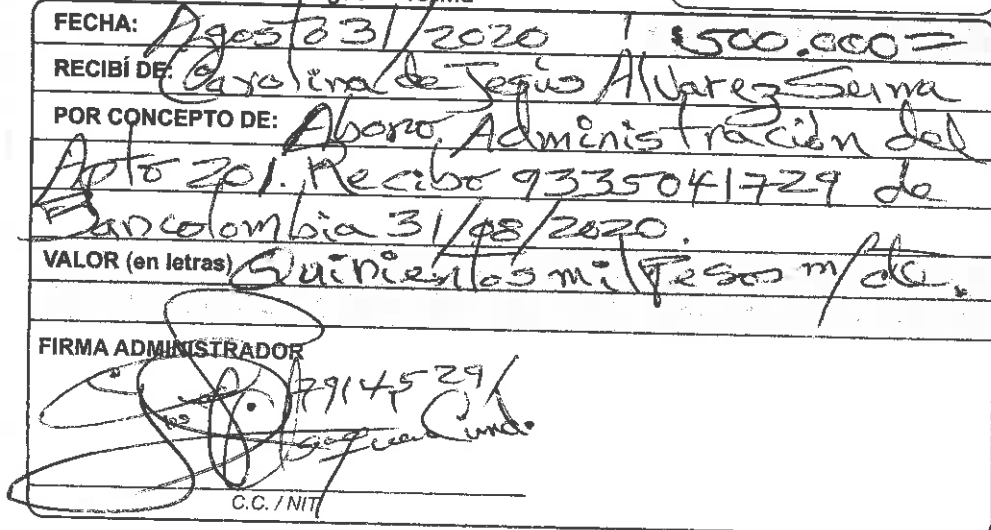 FECHA: Agosto 31/2020 $500.000=
RECIBÍ DE: Carolina de Jesús Alvarez Serna
POR CONCEPTO DE: Abono Administración del
Apto 201. Recibo 9335041729 de
Bancolombia 31/08/2020.
VALOR (en letras) Quinientos mil Pesos m/cte.
FIRMA ADMINISTRADOR
C.C. / NIT